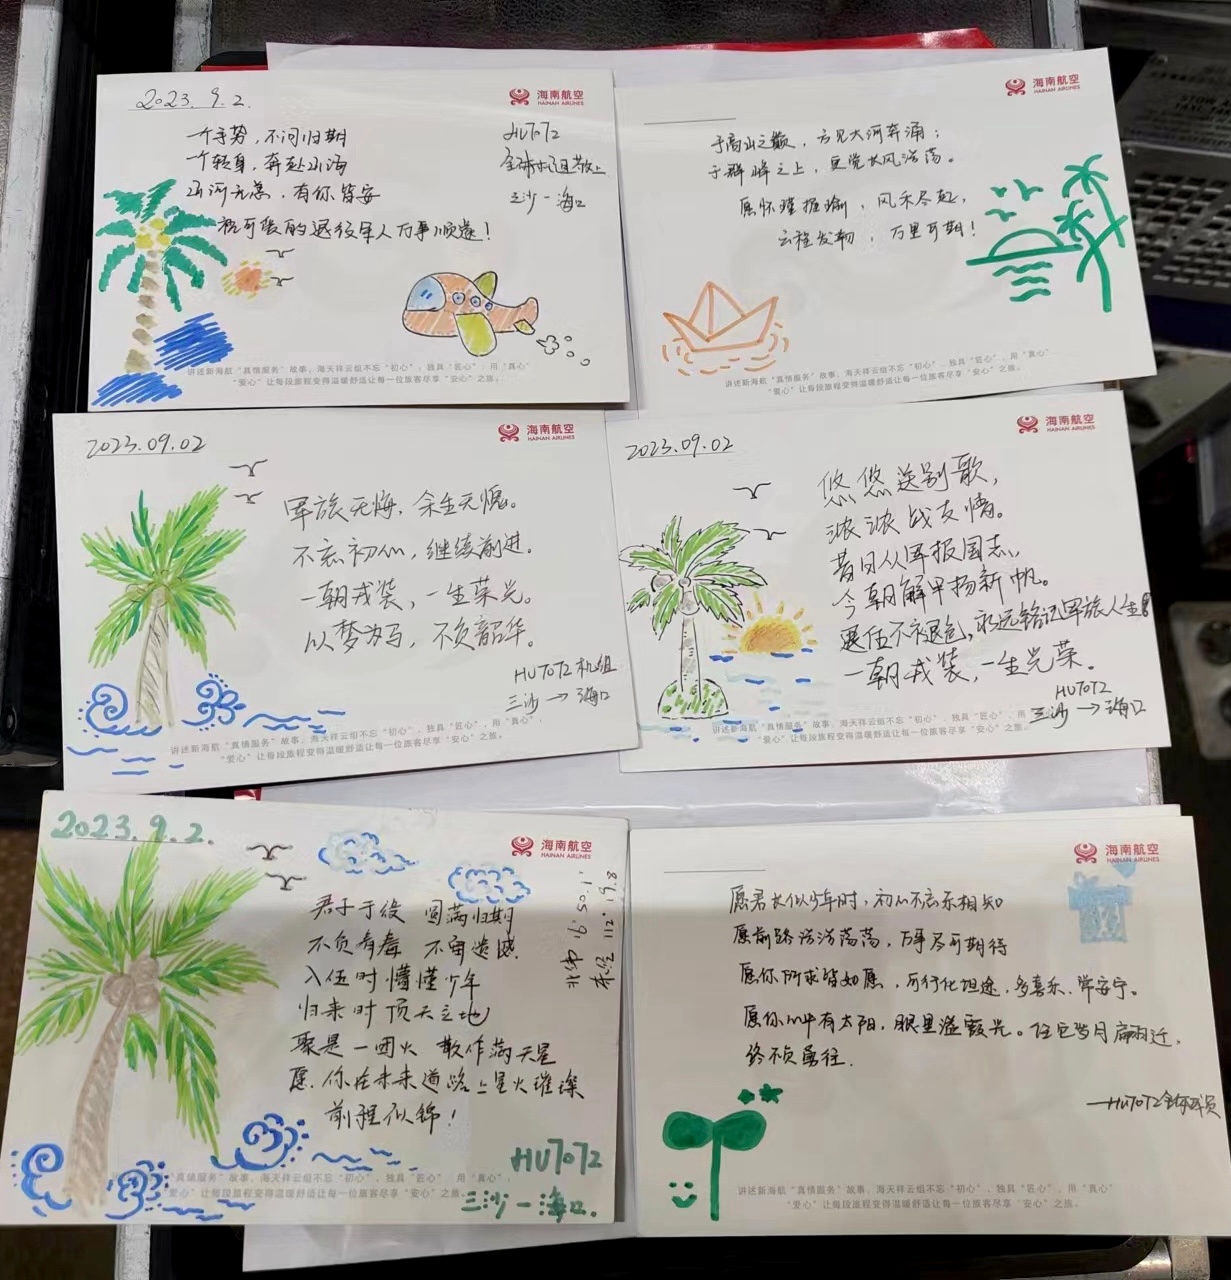 2023.9.2.
海南航空
HAINAN AIRLINES
一个手势，不问归期
一个转身，奔赴山海
山河无恙，有你皆安
祝可爱的退役军人万事顺遂！
HU7072
全体机组敬上
三沙—海口
讲述新海航“真情服务”故事，海天祥云组不忘“初心”，独具“匠心”，用“真心”
“爱心”让每段旅程变得温暖舒适让每一位旅客尽享“安心”之旅。
海南航空
HAINAN AIRLINES
于高山之巅，方见大河奔涌；
于群峰之上，更觉长风浩荡。
愿怀瑾握瑜，风禾尽起，
云程发轫，万里可期！
讲述新海航“真情服务”故事，海天祥云组不忘“初心”、独具“匠心”、用“真心”
“爱心”让每段旅程变得温暖舒适让每一位旅客尽享“安心”之旅。
2023.09.02
海南航空
HAINAN AIRLINES
军旅无悔，余生无愧。
不忘初心，继续前进。
一朝戎装，一生荣光。
以梦为马，不负韶华。
HU7072机组
三沙→海口
讲述新海航“真情服务”故事，海天祥云组不忘“初心”、独具“匠心”、用“真心”、
“爱心”让每段旅程变得温暖舒适让每一位旅客尽享“安心”之旅。
2023.09.02
海南航空
HAINAN AIRLINES
悠悠送别歌，
浓浓战友情。
昔日从军报国志，
今朝解甲扬新帆。
退伍不褪色，永远铭记军旅人生！
一朝戎装，一生光荣。
HU7072
三沙→海口
讲述新海航“真情服务”故事，海天祥云组不忘“初心”、独具“匠心”、用
“爱心”让每段旅程变得温暖舒适让每一位旅客尽享“安心”之旅。
2023.9.2.
海南航空
HAINAN AIRLINES
君子于役 圆满归期
不负青春 不留遗憾
入伍时懵懂少年
归来时顶天立地
聚是一团火 散作满天星
愿你在未来道路上星火璀璨
前程似锦！
北纬16°50.1'
东经112°19.8
HU7072
三沙—海口.
“真情服务”故事，海天祥云组不忘“初心”、独具“匠心”、用“真心”、
“爱心”让每段旅程变得温暖舒适让每一位旅客尽享“安心”之旅。
海南航空
HAINAN AIRLINES
愿君长似少年时，初心不忘乐相知
愿前路浩浩荡荡，万事尽可期待
愿你所求皆如愿，所行化坦途，多喜乐、常安宁。
愿你心中有太阳，眼里溢霞光。任它岁月扁翩迁，
终不负勇往.
—HU7072全体成员
讲述新海航“真情服务”故事，海天祥云组不忘“初心”、独具“匠心”、用“真心”
“爱心”让每段旅程变得温暖舒适让每一位旅客尽享“安心”之旅。